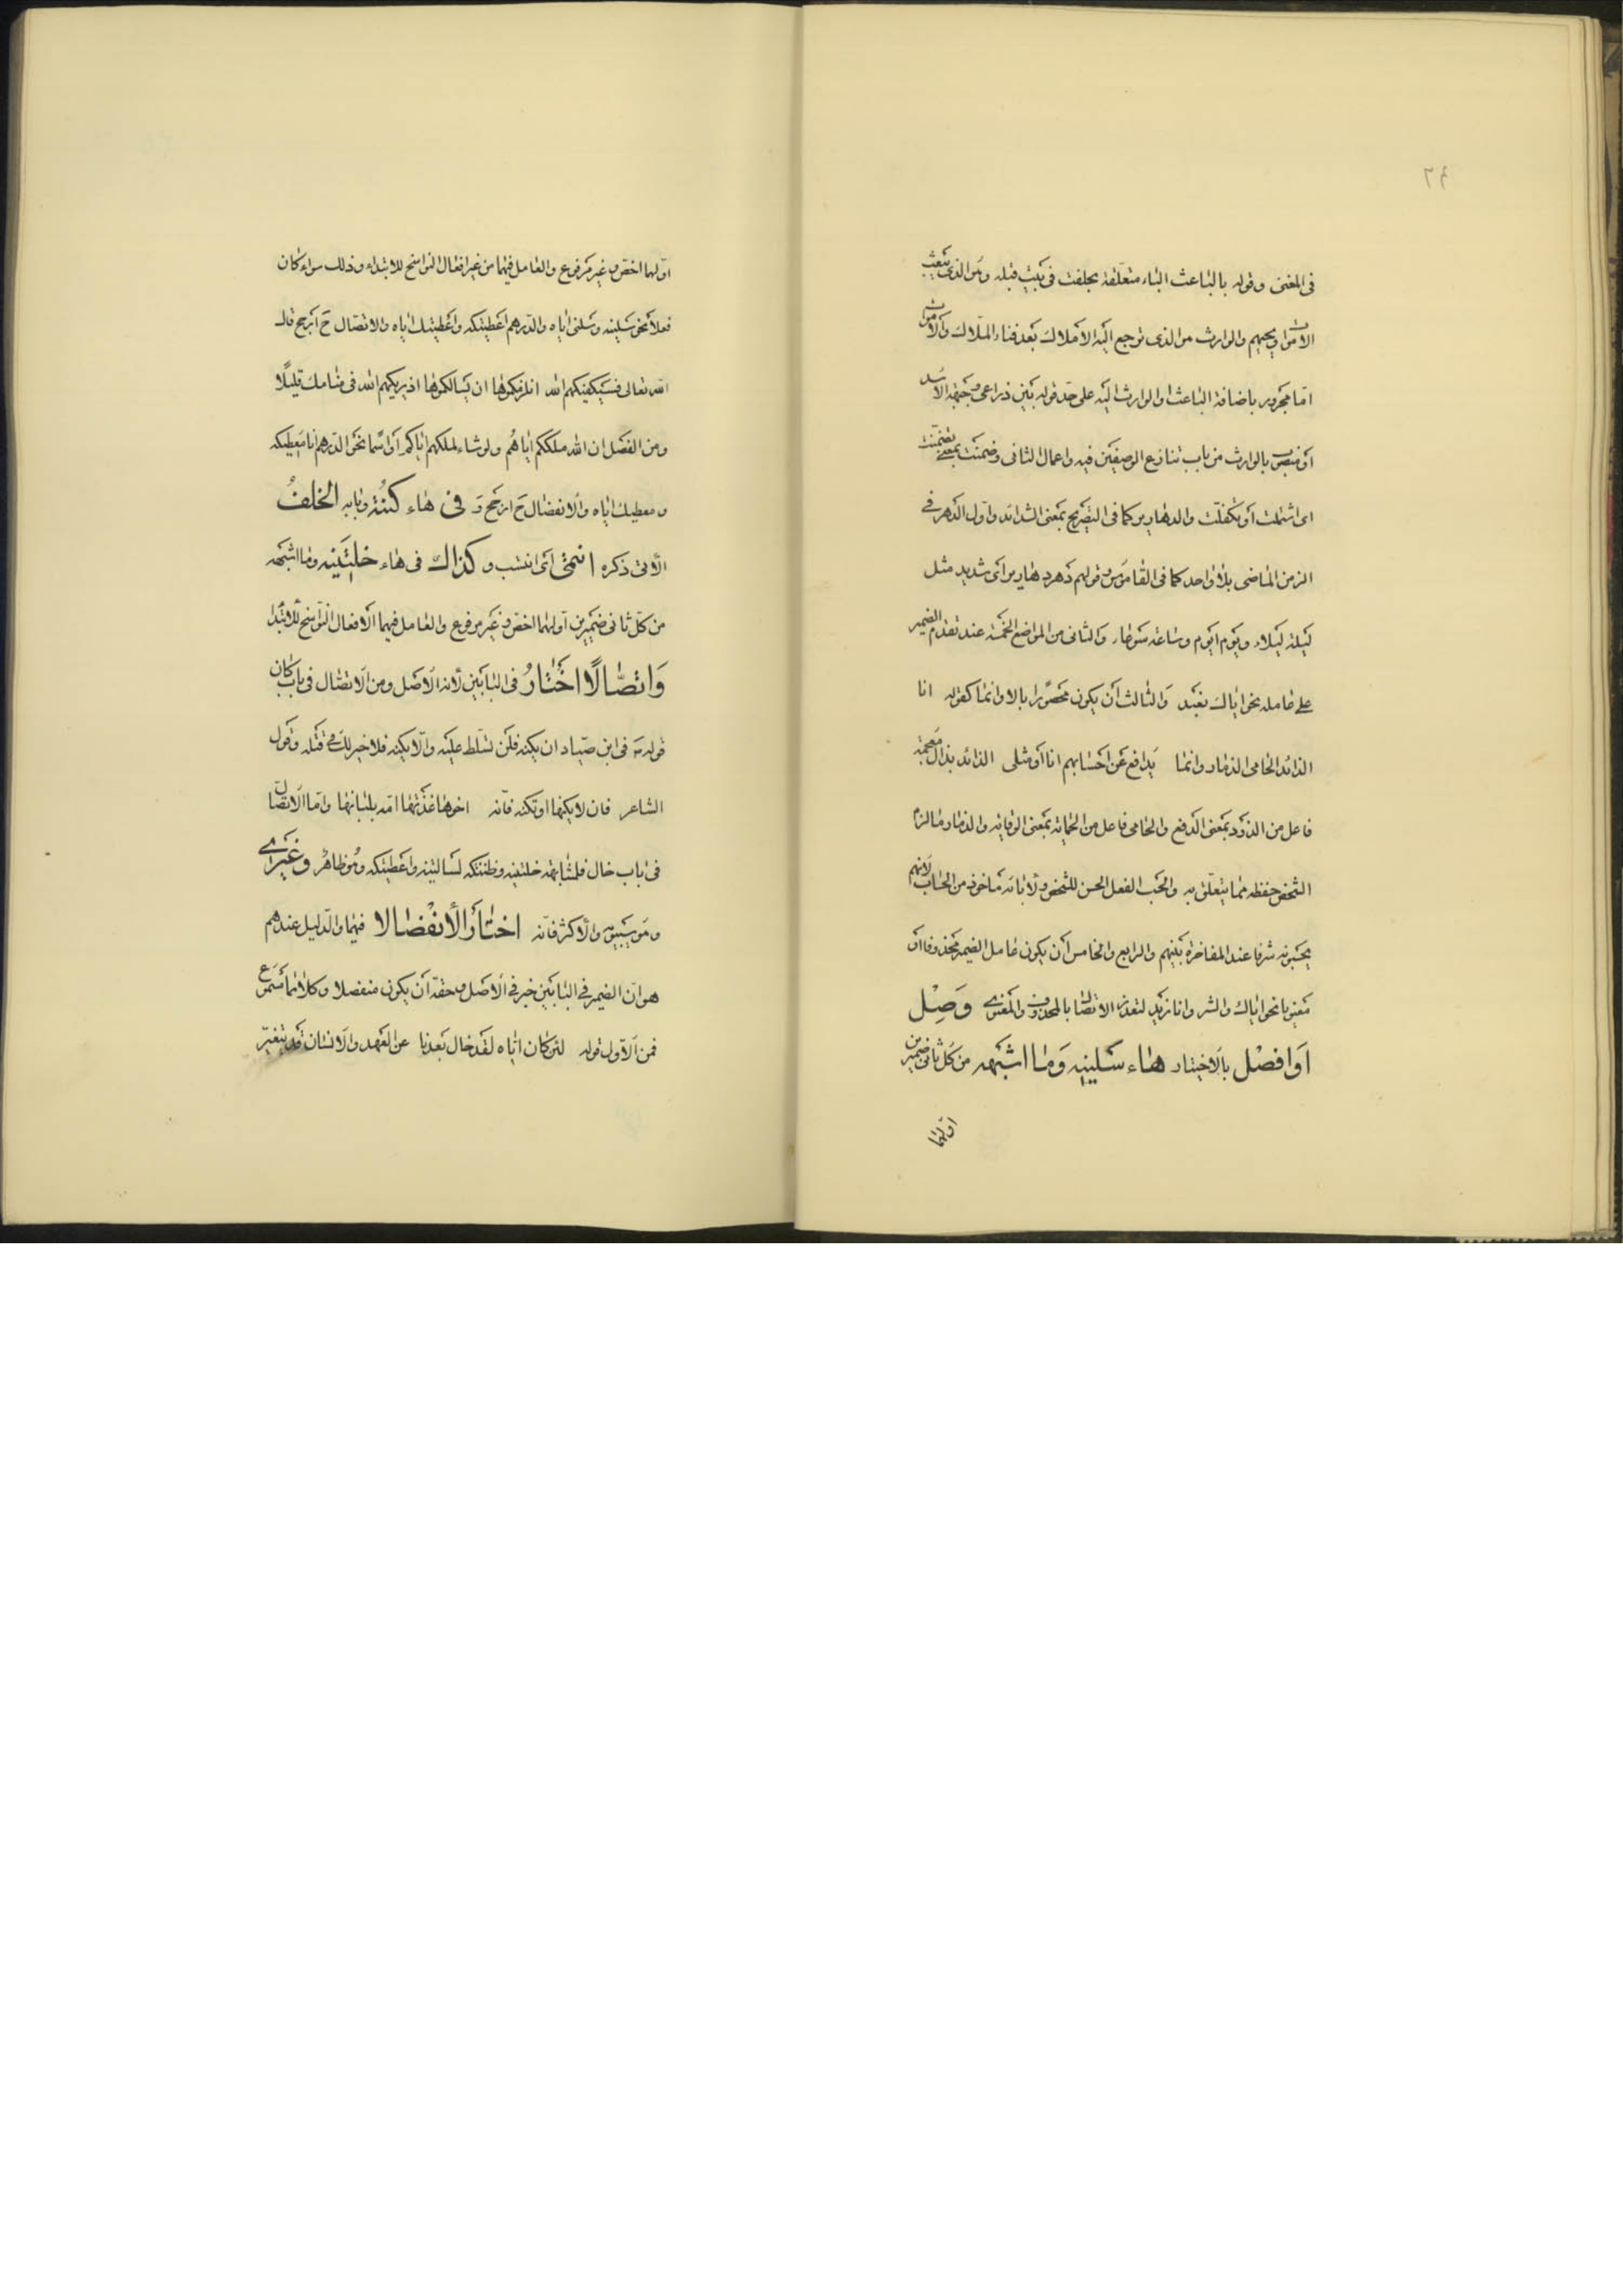 ٢٩
فى المغنى وقوله بالباعث الباء متعلقة بحلفت فى بيت قبله وهو الذى يبعث
الاموات ويحييهم والوارث من الذى ترجع اليه الاملاك بعد فناء الملاك والاموات
اما مجرور باضافة الباعث او الوارث اليه على حد قوله بين ذراعى وجبهة الاسد
او منصوب بالوارث من باب تنازع الوصفين فيه واعمال الثانى وضمنت بمعنى تضمنت
اى اشتملت او تكفلت والدهارير كما فى التصريح بمعنى الشدائد واول الدهر فى
الزمن الماضى بلا واحد كما فى القاموس وقولهم دهر دهارير اى شديد مثل
ليلة ليلاء ويوم ايوم وساعة سوعاء والثانى من المواضع الخمسة عند تقدم الضمير
على عامله نحو اياك نعبد والثالث ان يكون محصورا بالا وانما كقوله انا
الذائد الحامى الذمار وانما يدافع عن احسابهم انا او مثلى الذائد بذال معجمة
فاعل من الذود بمعنى الدفع والحامى فاعل من الحماية بمعنى الوقاية والذمار ما لزم
الشخص حفظه مما يتعلق به والحسب الفعل الحسن للشخص ولآبائه مأخوذ من الحساب لانهم
يحسبونه شرفا عند المفاخرة بينهم والرابع والخامس ان يكون عامل الضمير محذوفا او
معنويا نحو اياك والشر وانا زيد لتعذر الاتصال بالمحذوف والمعنوى وَصِل
اَوافصْل بالاختيار هاء سَلنيه وَما اشبَهه من كل ثانى ضميرين
اولهما
اولهما اخص وغير مرفوع والعامل فيهما من غير افعال النواسخ للابتداء وذلك سواء كان
فعلا نحو سلنيه وسلنى اياه والدرهم اعطيتكه واعطيتك اياه والاتصال ح ارجح قال
الله تعالى فسيكفيكهم الله انلزمكموها ان يسألكموها اذ يريكهم الله فى منامك قليلًا
ومن الفصل ان الله ملككم اياهم ولو شاء لملكهم اياكم او اسما نحو الدرهم انا معطيكه
ومعطيك اياه والانفصال ح ارجح وَ فى هاء كنتُه وبابه الخلفُ
الآتى ذكره انتمى اى انتسب و كذاك فى هاء خلتَنيه وما اشبهه
من كل ثانى ضميرين اولهما اخص وغير مرفوع والعامل فيهما الافعال النواسخ للابتدا
وَاتصّالًا اخْتارُ فى البابين لانه الاصل ومن الاتصال فى باب كان
قوله ص فى ابن صياد ان يكنه فلن تسلط عليه والا يكنه فلا خير لك فى قتله وقول
الشاعر فان لا يكنها او تكنه فانه اخوها غذتها امه بلبانها واما الاتصال
فى باب خال فلمشابهة خلتنيه وظننتكه لسألتنيه واعطيتكه وهو ظاهر وغيرى
وهو سيبويه والاكثر فانه اختارَ الأنفْصالا فيهما والدليل عندهم
هو ان الضمير فى البابين خبر فى الاصل وحقه ان يكون منفصلا وكلاهما مسموع
فمن الاول قوله لئن كان اياه لقد حال بعدنا عن العهد والانسان قد يتغير